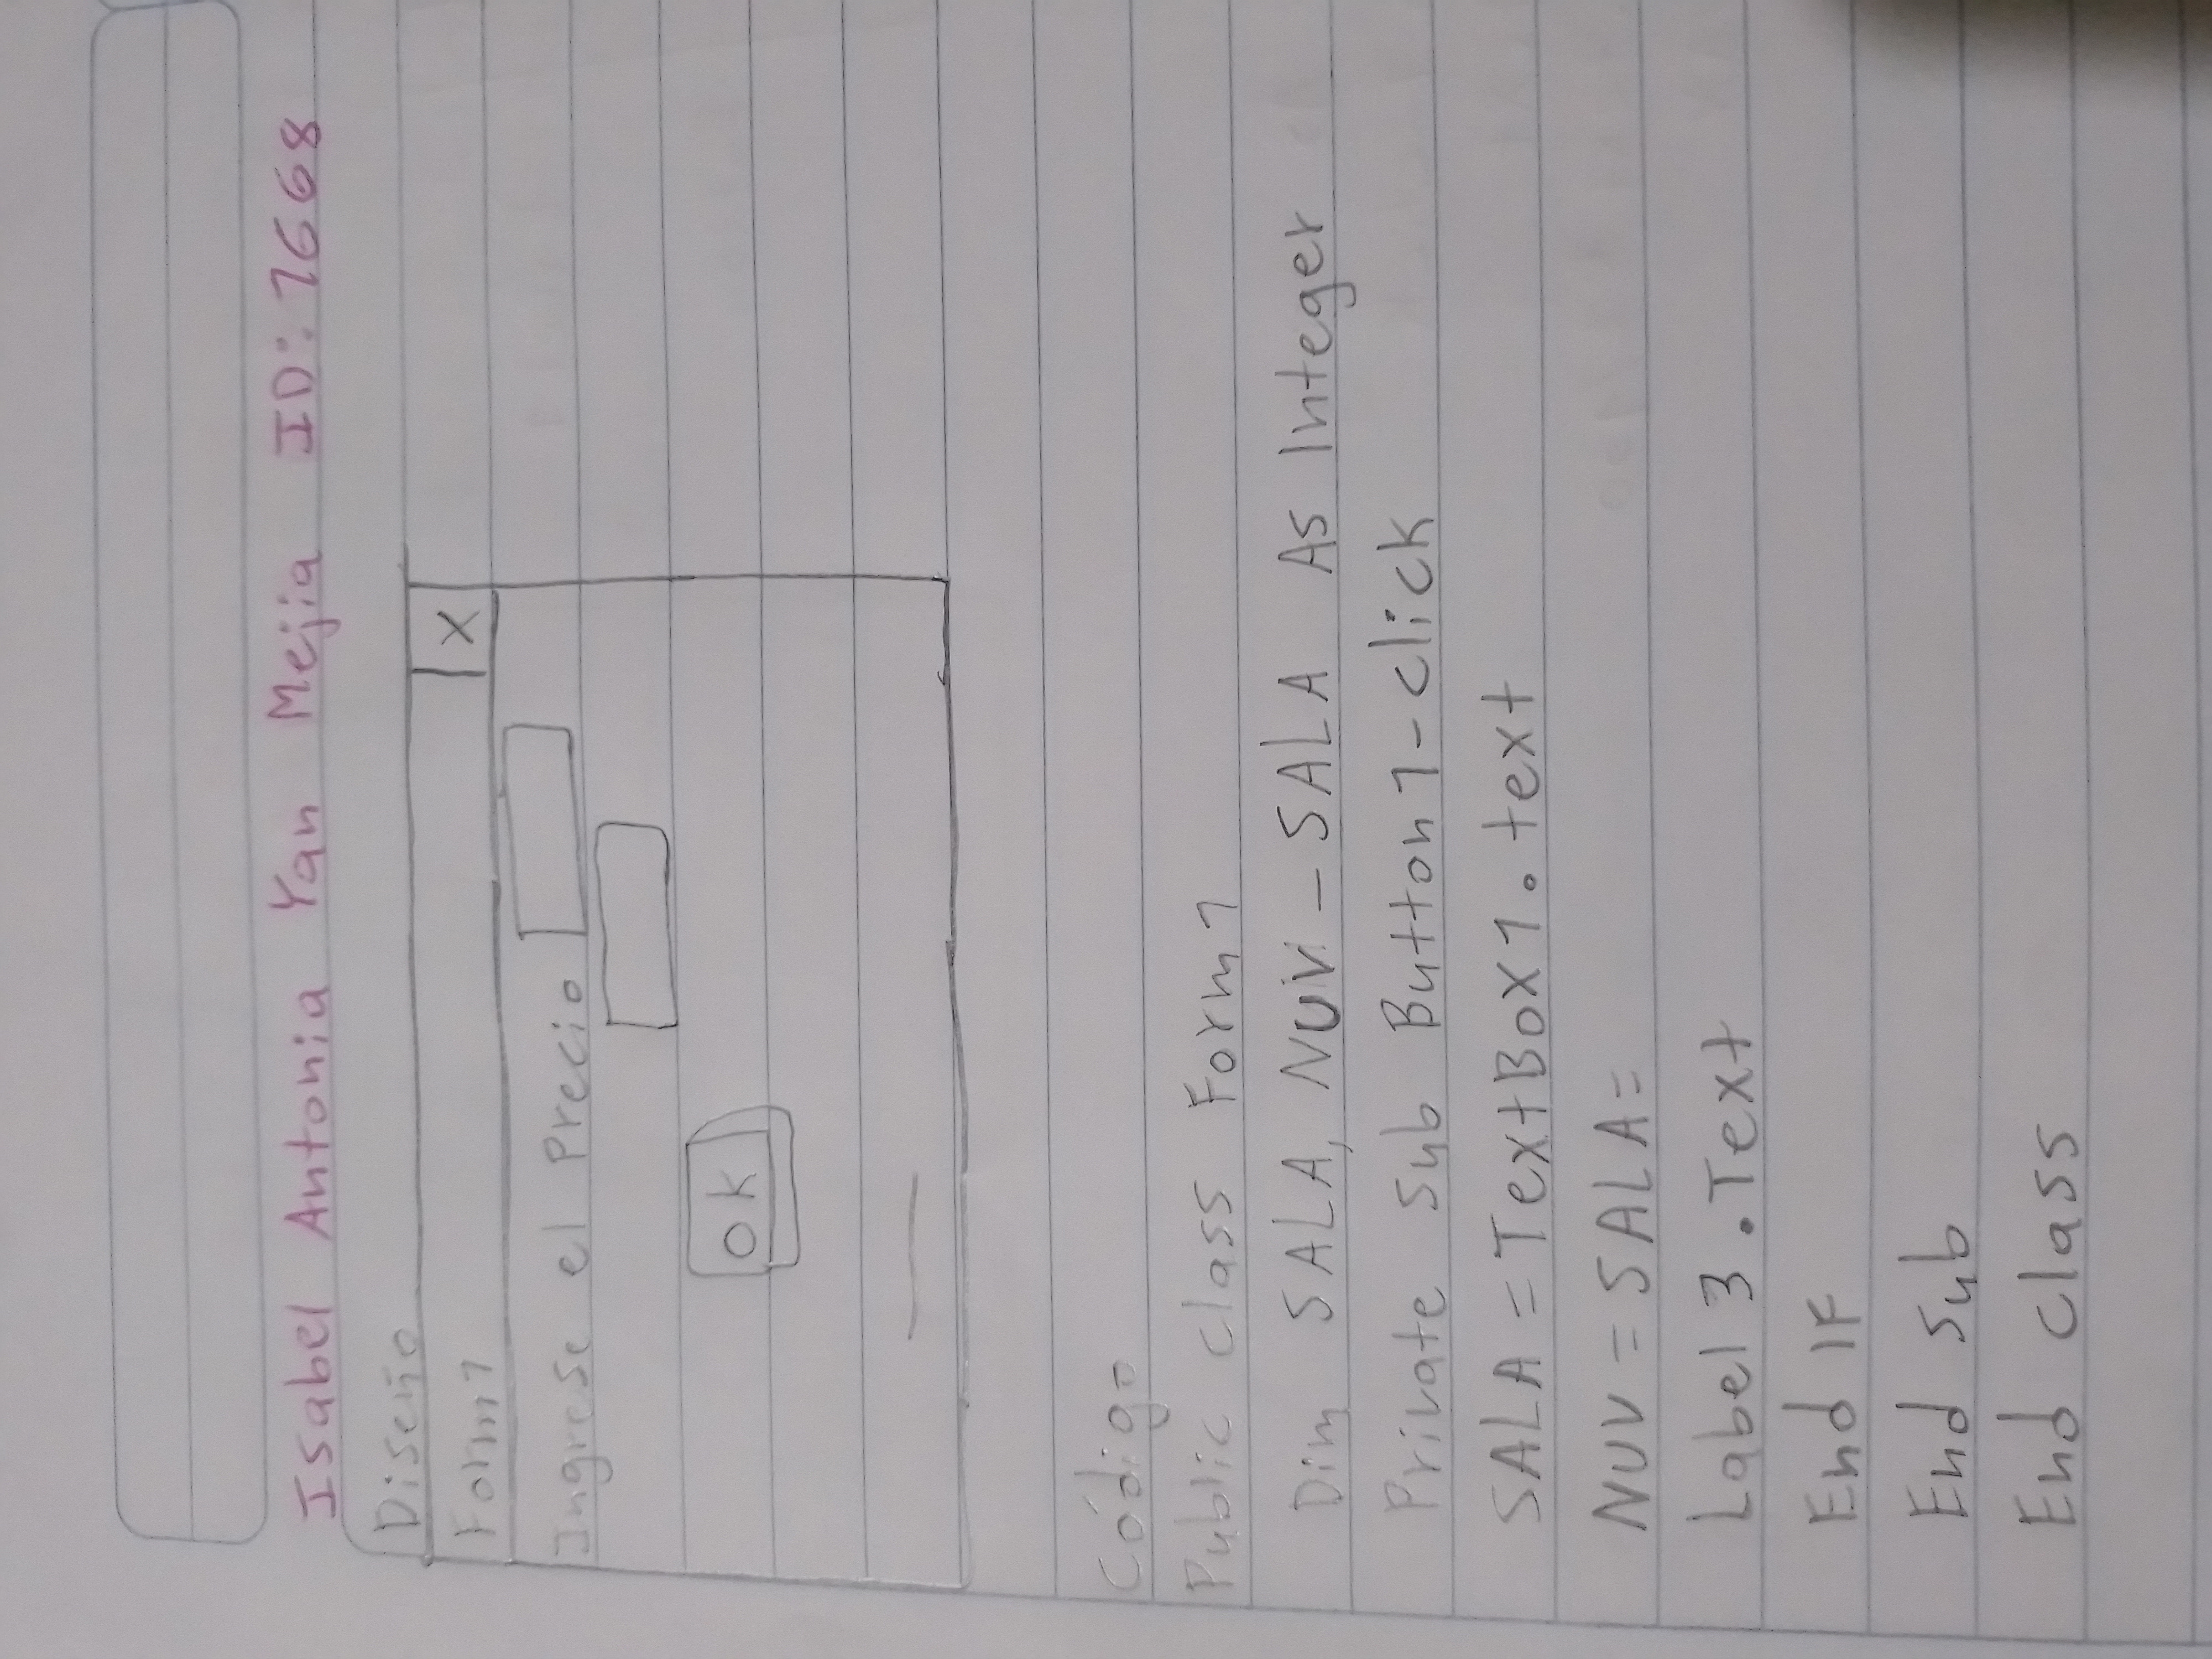 Isabel Antonia Yan Mejia ID: 1668
Diseño
Form1 X
Ingrese el Precio
ok
Código
Public Class Form1
Dim SALA, NUV-SALA As Integer
Private Sub Button1-click
SALA = TextBox1.text
NUV = SALA =
Label 3.Text
End IF
End Sub
End Class